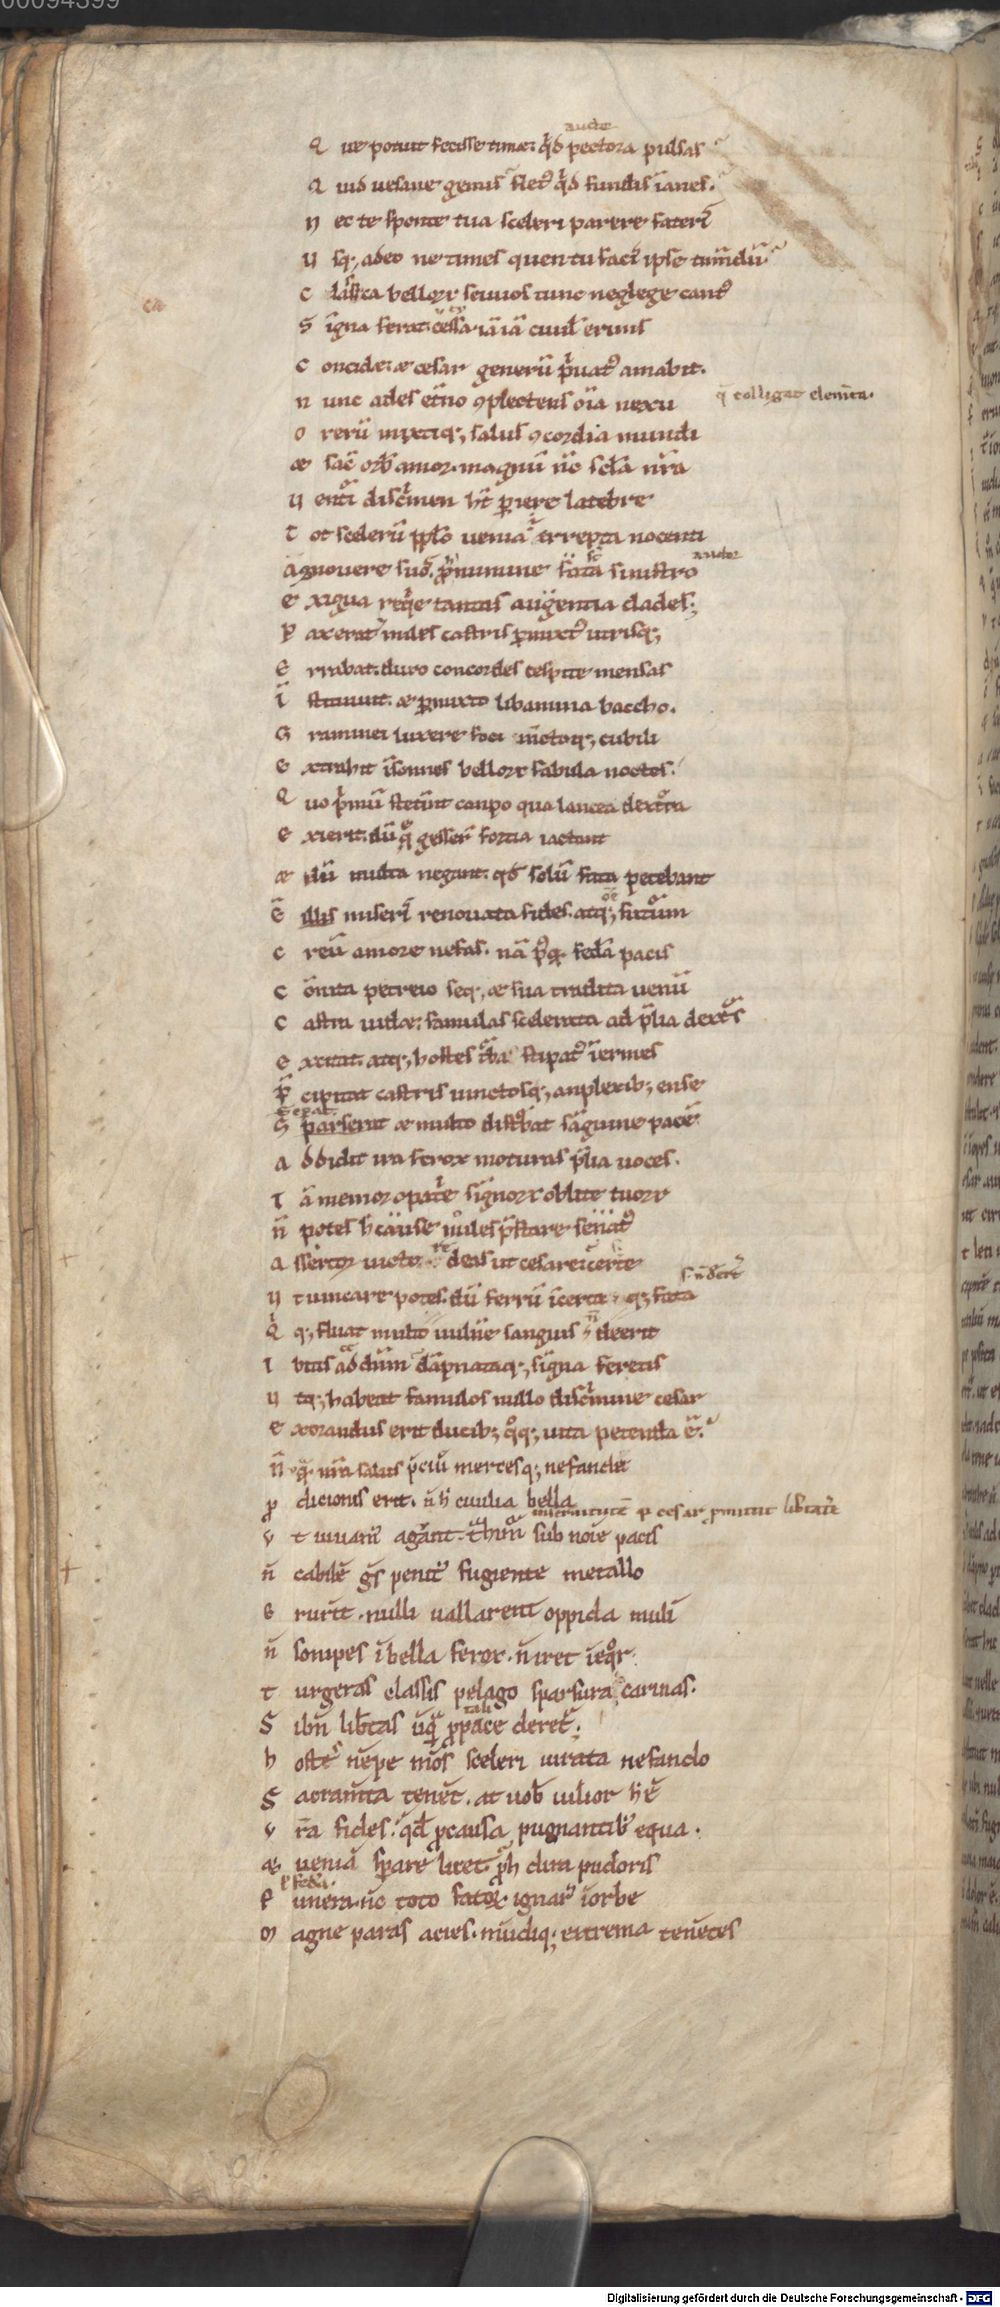 00094399
aude
Q ue potuit fecisse timet. q̇d pectora pulsas
Q uid uesane gemis fletꝰ q̇d fundis ĩanes.
N ec te sponte tua sceleri parere faterĩ
U sq; adeo ne times quem tu facĩ ipse tim̃dũ
C lasica belloꝝ seuuos tunc neglege cantꝰ
S igna ferat. cessa iã iã ciuil erinis
C oncidet. æ cesar generũ p̃uatꝰ amabit.
N unc ades et̃no ꝯplectens oĩa nexu
q̃ colligat elem̃ta.
O rerũ mixtiq; salus ꝯcordia mundi
æ sac̃ orb amor. magnũ nc̃ scl̃a nr̃a
U ent̃i disc̃men hñt p̱iere latebre
T ot scelerũ pplo uenia ẽ errepta nocenti
Agnouere suos. p̃ numine fata sinistro
E xigua req̇e tantas augentia clades;
P ax erat miles castris p̱mixtꝰ utrisq;
E rrabat. duro concordes cespite mensas
I stituunt. æ p̱mixto libamina baccho.
G raminei luxere foci iũctoq; cubili
E xtrahit ĩsomnes belloꝝ fabula noctes.
Q uo p̃mũ stetint canpo qua lancea dextra
E xierit. dũ q̃ gesser̃ fortia iactant
æ dũ multa negant. qd solũ fata petebant
Ẽ illis miserĩ renouata fides. atq; futurum
C reũ amore nefas. nã pꝰq fedã pacis
C ogñita petreio seq; æ sua tradita uenũ
C astra uidet. famulas scelerata ad p̃lia dextras
E xcitat. atq; hostes tba stipatꝰ ĩermes
P̃ cipitat castris iunctosq; anplexib; ense
S eparat
S parserat æ multo distꝰbat sãguine pacẽ
A ddidit ira ferox moturas p̃lia uoces.
I ã memor o patrie signoꝝ oblite tuoꝝ
Ñ potes h̃ cause miles p̃stare senatꝰ
A ssertor uicto redeas ut cesare certe
U t uincare potes. dũ ferrũ ĩcerta q; fata
Q̇ q; fluat multo uulñe sanguis ñ deerit
I bitis ad dñum dãpnataq; signa feretis
U tq; habeat famulos nullo disc̃mine cesar
E xorandus erit ducib; q̊q; uita petenda ẽ.
Ñ q̃ nr̃a salus p̃ciũ mercesq; nefande
P dicionis erit. ñ h̃ ciuilia bella
V t uiuamꝰ agant. t̃himꝰ sub noĩe pacis
p̱ cesar p̱mittit libtatẽ
Ñ cabilẽ gs̃ penitꝰ fugiente metallo
E rur̃t. nulli uallarent oppida muri
Ñ sonipes ĩ bella feror. ñ iret ĩ eq̊r
T urgeras classis pelago sparsura carinas.
S ibñ libtas ũq̃ p pace deret.
H osteꝰ nẽpe mõs sceleri iurata nefando
S acram̃ta tenẽt. at uob uilior h̃ ẽ
V ra fides. qd p̱ causa pugnantibꝰ equa.
æ ueniã sp̱are licet. p̃h dira pudoris
p̱ fedã
F unera. nc̃ toto fatoꝝ ignarꝰ ĩ orbe
M agne paras acies. mũdiq; extrema tenẽtes
Digitalisierung gefördert durch die Deutsche Forschungsgemeinschaft - DFG